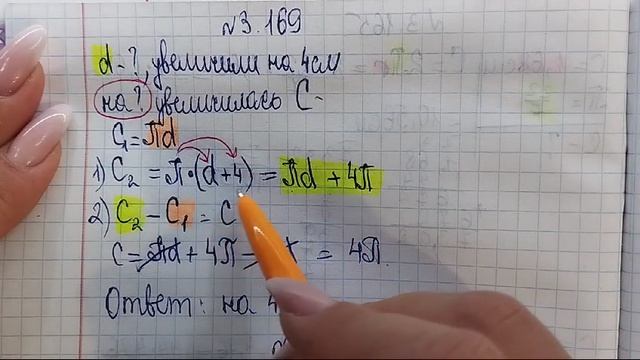 №3.169
d-?, увеличили на 4см
на? увеличилась C-
C₁=πd
1) C₂ = π•(d+4) = πd + 4π
2) C₂ - C₁ = C
C = πd + 4π - = 4π.
Ответ: на 4